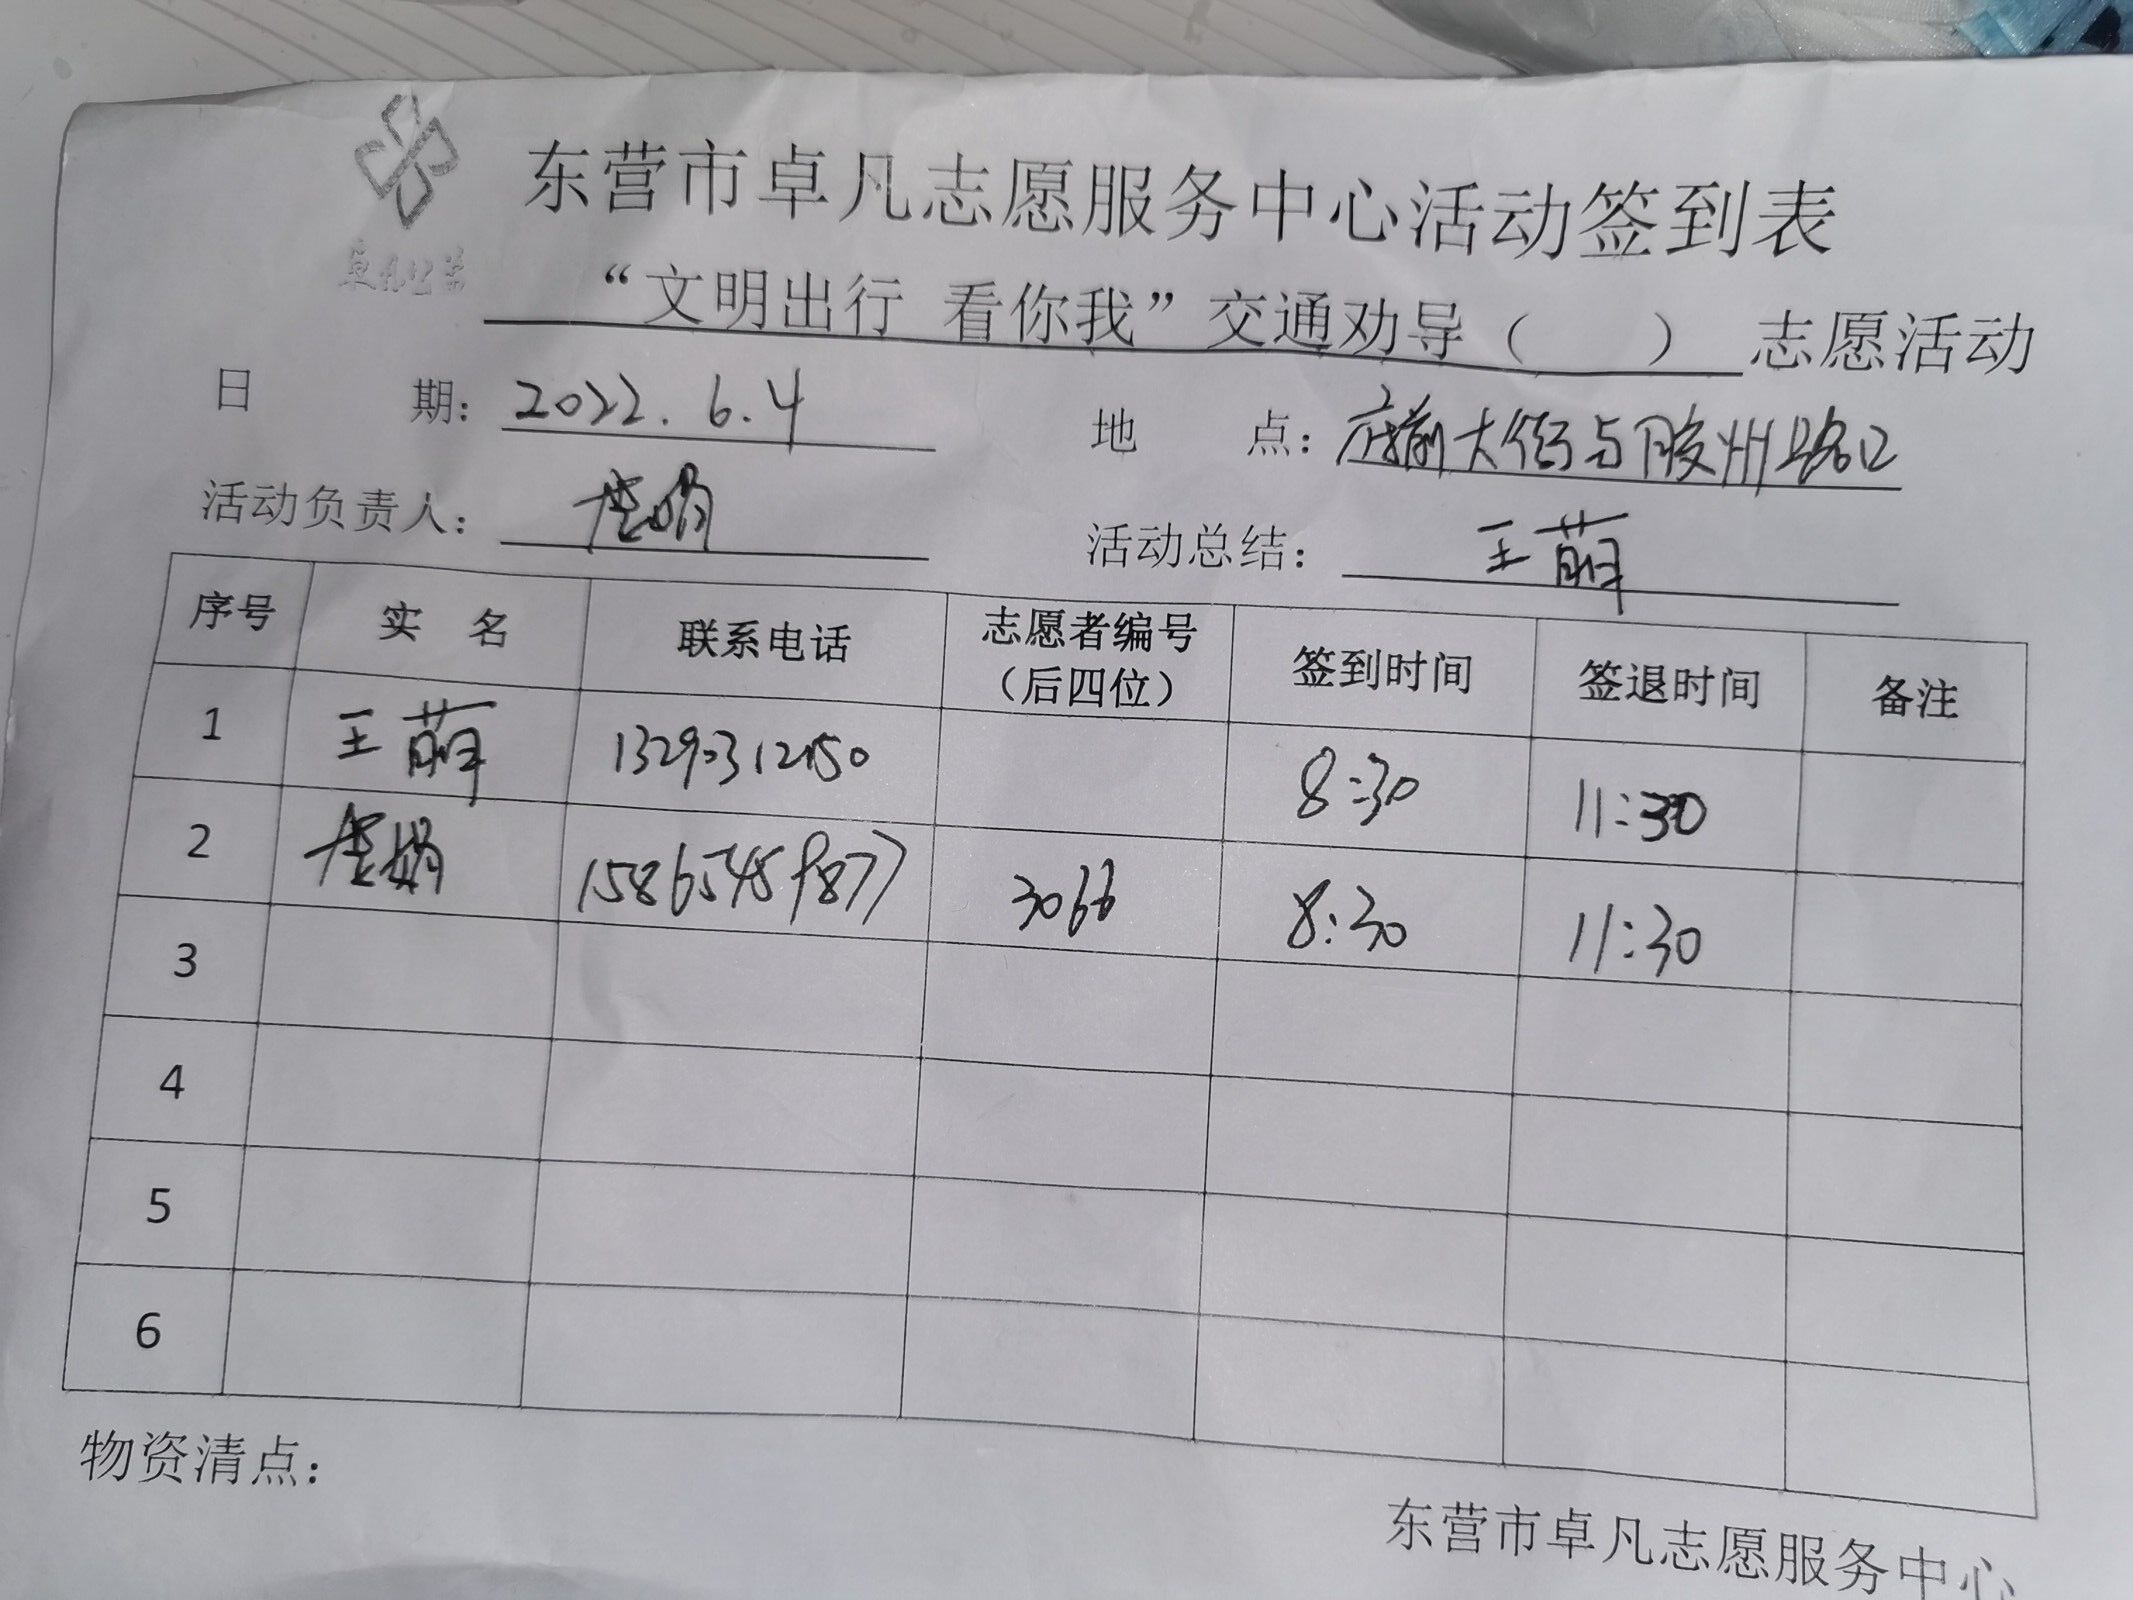 卓凡公益
东营市卓凡志愿服务中心活动签到表
“文明出行 看你我”交通劝导( ) 志愿活动
日 期: 2022.6.4 地 点: 府前大街与胶州路口
活动负责人: 活动总结: 王萌
序号 实 名 联系电话 志愿者编号(后四位) 签到时间 签退时间 备注
1 王萌 8:30 11:30
2 15865459877 3066 8:30 11:30
3
4
5
6
物资清点:
东营市卓凡志愿服务中心